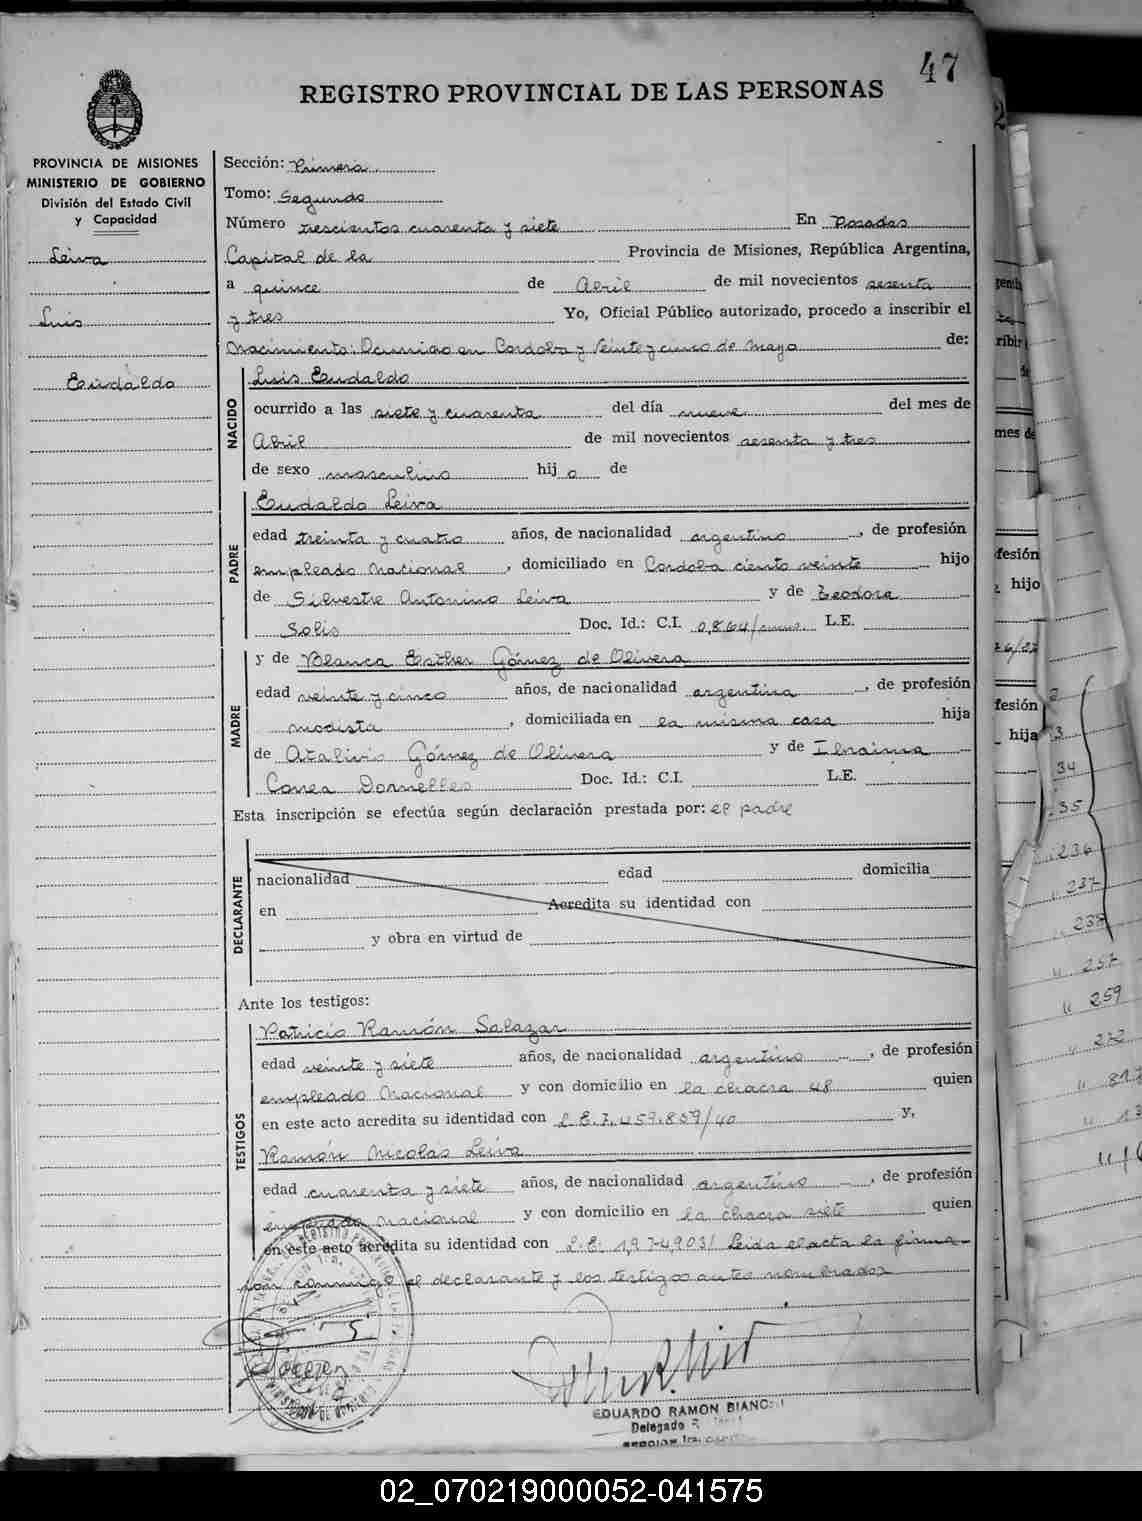 47
REGISTRO PROVINCIAL DE LAS PERSONAS
PROVINCIA DE MISIONES
MINISTERIO DE GOBIERNO
División del Estado Civil
y Capacidad
Leiva
Luis
Eudaldo
Sección: Primera
Tomo: Segundo
Número trescientos cuarenta y siete En Posadas
Capital de la Provincia de Misiones, República Argentina,
a quince de Abril de mil novecientos sesenta
y tres Yo, Oficial Público autorizado, procedo a inscribir el
Nacimiento: Ocurrido en Cordoba y Veinte y cinco de Mayo de:
NACIDO
Luis Eudaldo
ocurrido a las siete y cuarenta del día nueve del mes de
Abril de mil novecientos sesenta y tres
de sexo masculino hijo de
PADRE
Eudaldo Leiva
edad treinta y cuatro años, de nacionalidad argentino, de profesión
empleado Nacional, domiciliado en Cordoba ciento veinte hijo
de Silvestre Antonino Leiva y de Teodora
Solis Doc. Id.: C.I. L.E.
MADRE
y de Blanca Esther Gómez de Olivera
edad veinte y cinco años, de nacionalidad argentina, de profesión
modista, domiciliada en la misma casa hija
de Atalivio Gómez de Olivera y de
Correa Dornelles Doc. Id.: C.I. L.E.
Esta inscripción se efectúa según declaración prestada por: el padre
DECLARANTE
nacionalidad edad domicilia
en Acredita su identidad con
y obra en virtud de
Ante los testigos:
TESTIGOS
Patricio Ramón Salazar
edad veinte y siete años, de nacionalidad argentino, de profesión
empleado Nacional y con domicilio en la chacra 48 quien
en este acto acredita su identidad con L.E. 7.459.859/40 y,
Ramón Nicolás Leiva
edad cuarenta y siete años, de nacionalidad argentino, de profesión
empleado Nacional y con domicilio en la chacra siete quien
en este acto acredita su identidad con L.E. Leida el acta la firma
con conmigo el declarante y los testigos antes nombrados
EDUARDO RAMON BIANCHI
Delegado
02_070219000052-041575